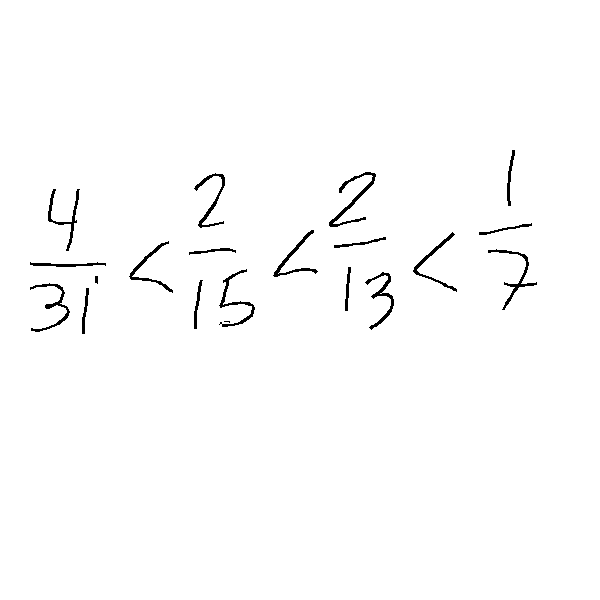 4/31 < 2/15 < 2/13 < 1/7